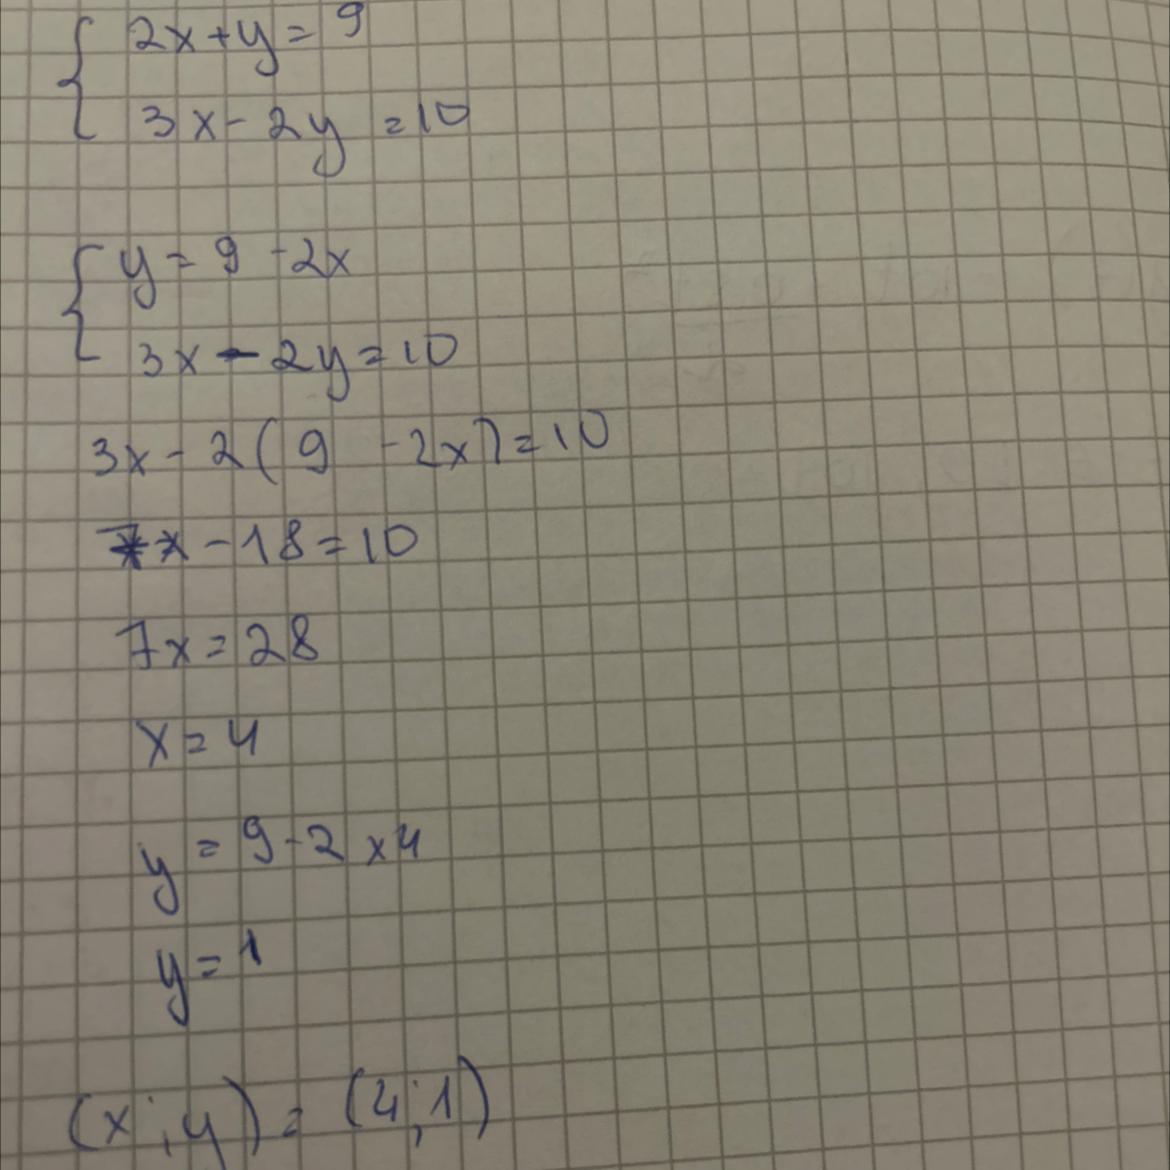 2x+y=9
3x-2y=10
y=9-2x
3x-2y=10
3x-2(9-2x)=10
7x-18=10
7x=28
x=4
y=9-2x4
y=1
(x;y)=(4;1)